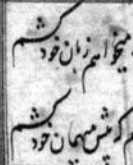 میخواهم زبان خود کشم
م که پیش میهمان خود کشم